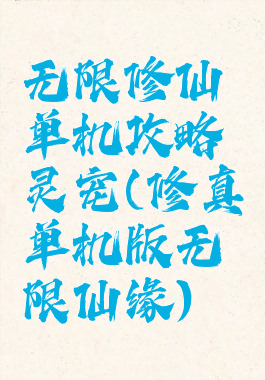 无限修仙
单机攻略
灵宠(修真
单机版无
限仙缘)